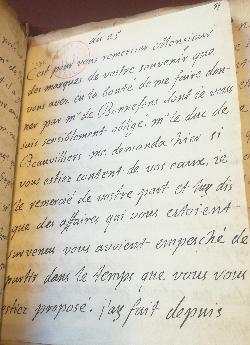 du 25
C'est pour vous remercier Monsieur
des marques de vostre souvenir que
vous avez eu la bonté de me faire don-
ner par mr de Bonrefons dont ie vous
suis sensiblement obligé. mr le duc de
Beauvilliers me demanda hier si
vous estiez content de vos eaux, ie
le remercié de vostre part et luy dis
que des affaires qui vous estoient
survenus vous avoient empesché de
partir dans le temps que vous vous
estiez proposé. j'ay fait depuis